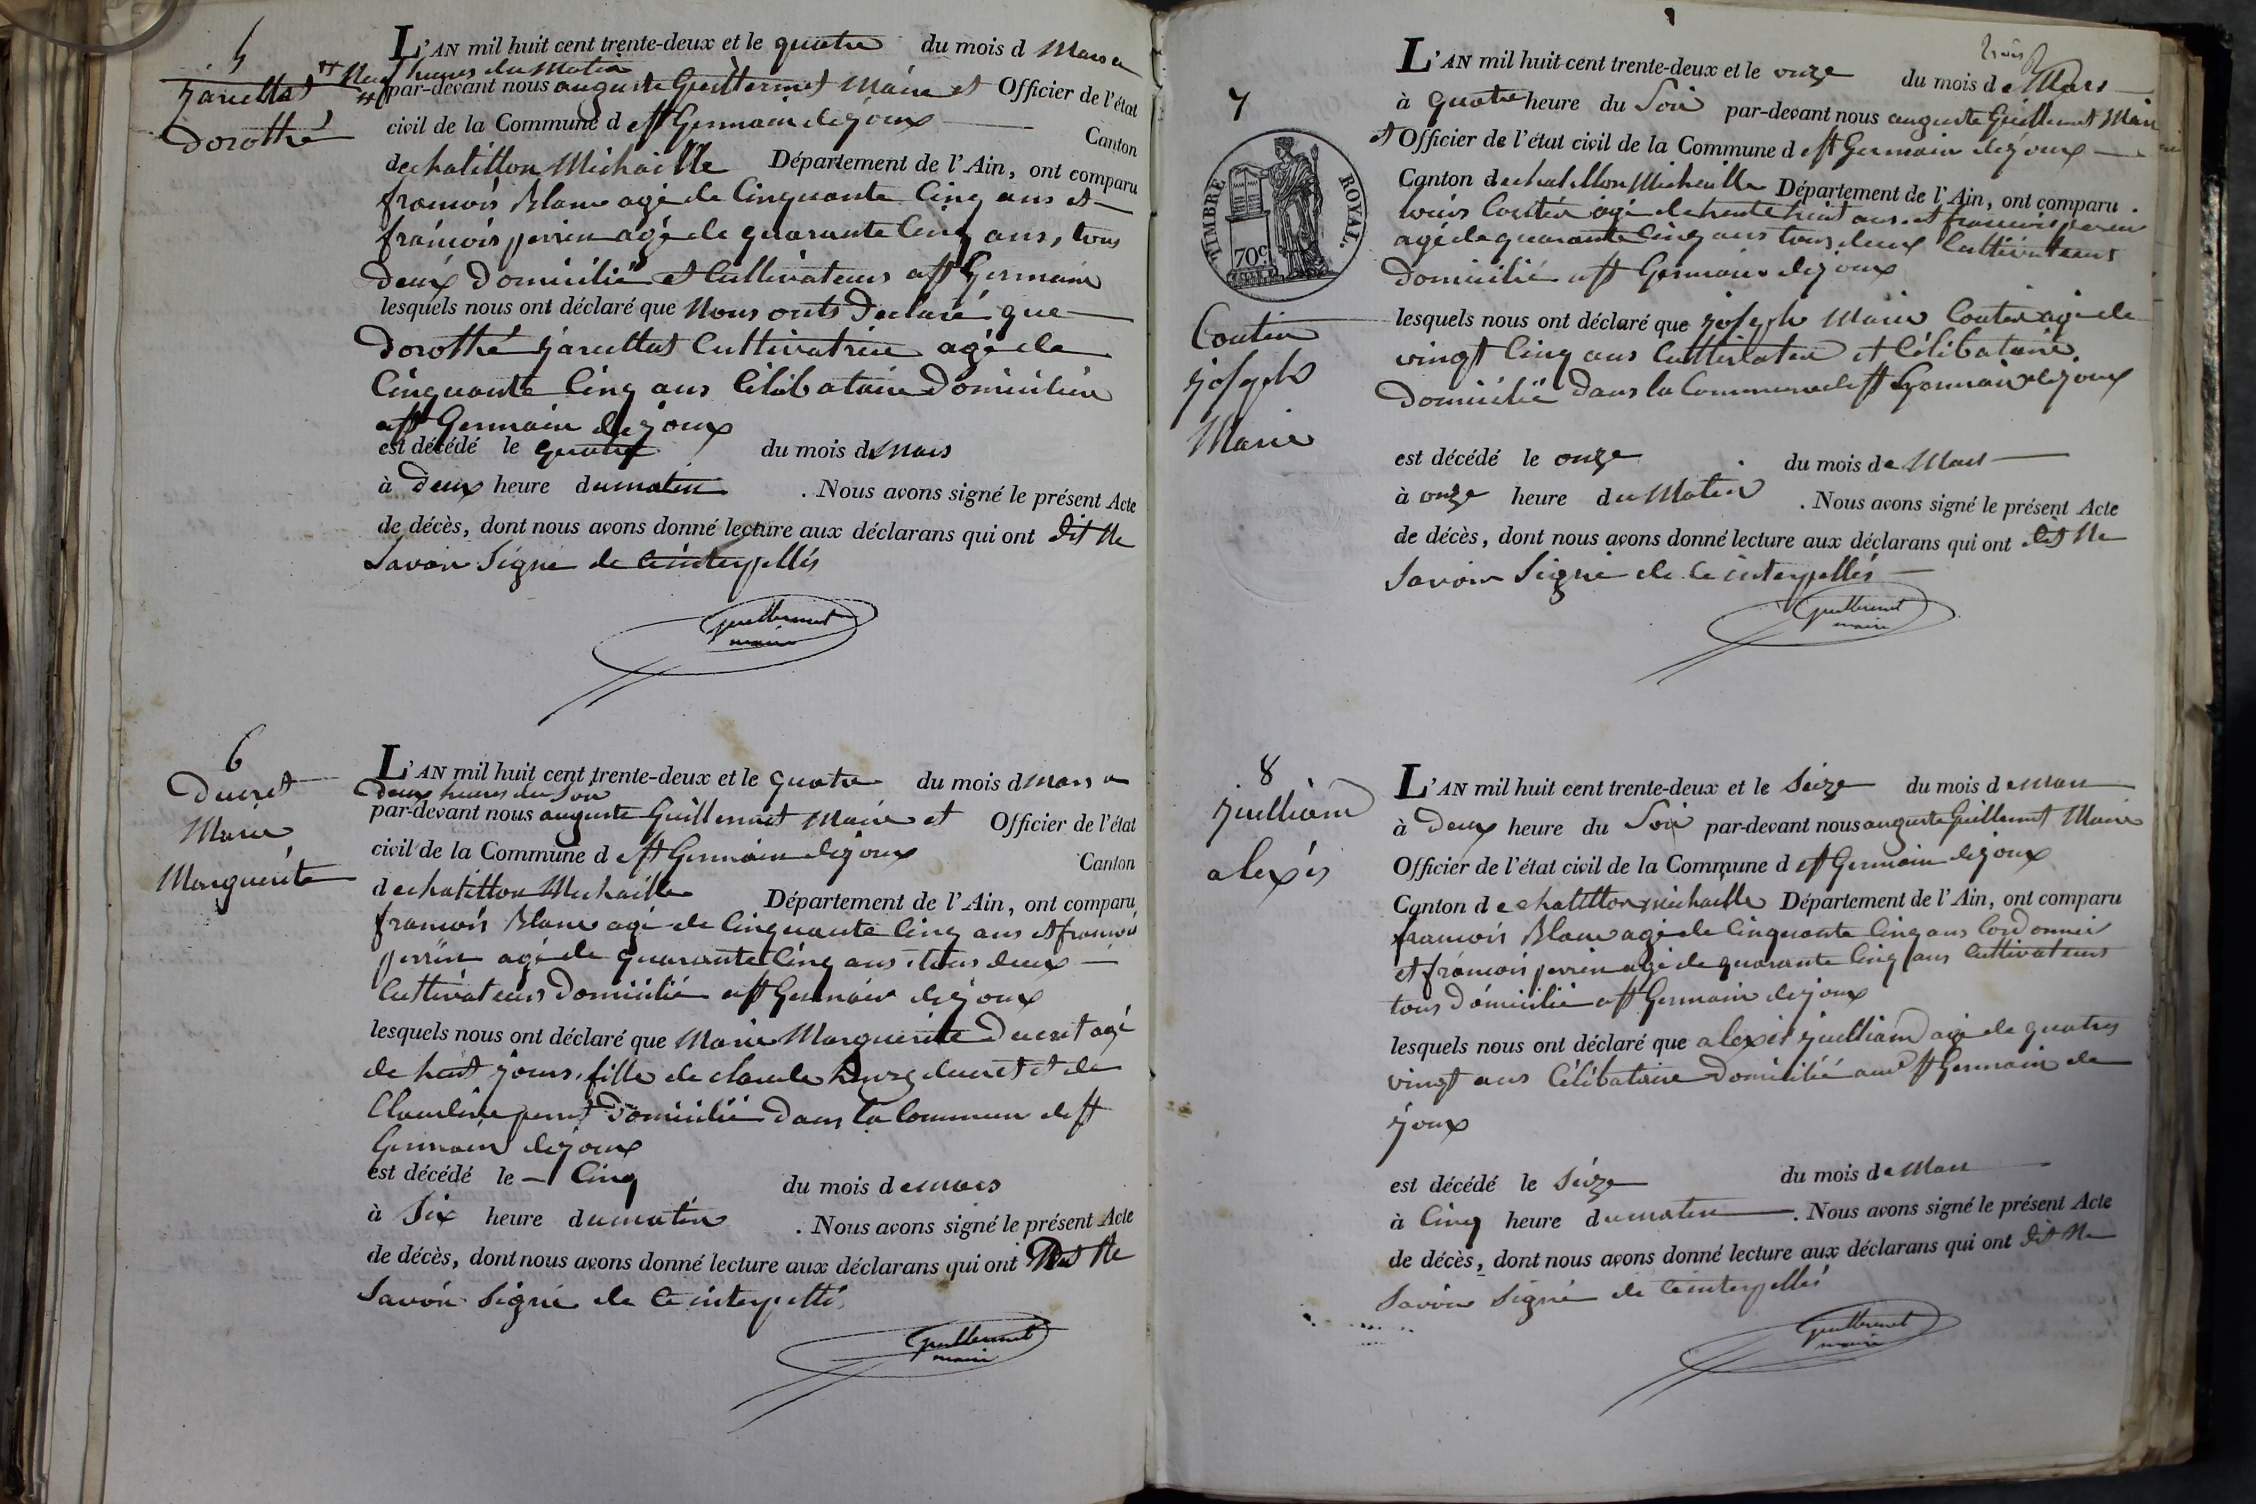 5
Jarcellat
Dorothé
L'AN mil huit cent trente-deux et le quatre du mois d Mars a
Neuf heures du Matin
par-devant nous auguste Guillermet Maire et Officier de l'état
civil de la Commune d e St Germain de joux Canton
de chatillon Michaille Département de l'Ain, ont comparu
francois Blanc agé de Cinquante Cinq ans et
francois perrin agé de quarante Cinq ans, tous
deux Domicilié et Cultivateurs a St Germain
lesquels nous ont déclaré que Nous onts Declaré que
Dorothé Jarcellat Cultivatrice agé de
Cinquante Cinq ans Célibataire Domicilieé
a St Germain de joux
est décédé le quatre du mois d Mars
à Deux heure du matin . Nous avons signé le présent Acte
de décès, dont nous avons donné lecture aux déclarans qui ont dit Ne
Savoir Signé de Ce interpellés
Guillermet
maire
6
Ducret
Marie
Marguerite
L'AN mil huit cent trente-deux et le quatre du mois d Mars a
Deux heures du Soir
par-devant nous auguste Guillermet Maire et Officier de l'état
civil de la Commune d e St Germain de joux Canton
de chatillon Michaille Département de l'Ain, ont comparu
francois Blanc agé de Cinquante Cinq ans et francois
perrin agé de quarante Cinq ans, tous deux
Cultivateurs Domicilié a St Germain de joux
lesquels nous ont déclaré que Marie Marguerite Ducret agé
de huit jours, fille de claude ducret et de
Claudine Domicilié Dans la Commune de St
Germain de joux
est décédé le Cinq du mois de mars
à Six heure du matin . Nous avons signé le présent Acte
de décès, dont nous avons donné lecture aux déclarans qui ont Dit Ne
Savoir Signé de Ce interpellé
Guillermet
maire
7
TIMBRE ROYAL.
70c
Coutier
joseph
Marie
trois
L'AN mil huit cent trente-deux et le onze du mois d e Mars
à quatre heure du Soir par-devant nous auguste Guillermet Maire
et Officier de l'état civil de la Commune d e St Germain de joux
Canton de chatillon Michaille Département de l'Ain, ont comparu
louis Coutier agé de trente huit ans et francois perrin
agé de quarante Cinq ans tous deux Cultivateurs
Domicilié a St Germain de joux
lesquels nous ont déclaré que joseph Marie Coutier agé de
vingt Cinq ans Cultivateur et Célibataire,
Domicilié Dans la Commune de St Germain de joux
est décédé le onze du mois de Mars
à onze heure du Matin . Nous avons signé le présent Acte
de décès, dont nous avons donné lecture aux déclarans qui ont dit Ne
Savoir Signé de Ce interpellés
Guillermet
maire
8
juilliard
alexis
L'AN mil huit cent trente-deux et le Seize du mois d e Mars
à Deux heure du Soir par-devant nous auguste Guillermet Maire
Officier de l'état civil de la Commune d e St Germain de joux
Canton d e chatillon michaille Département de l'Ain, ont comparu
francois Blanc agé de Cinquante Cinq ans Cordonnier
et francois perrin agé de quarante Cinq ans Cultivateurs
tous Domicilié a St Germain de joux
lesquels nous ont déclaré que alexis juilliard agé de quatres
vingt ans Célibataire Domicilié au St Germain de
joux
est décédé le Seize du mois de Mars
à Cinq heure du matin . Nous avons signé le présent Acte
de décès, dont nous avons donné lecture aux déclarans qui ont dit Ne
Savoir Signé de Ce interpellés
Guillermet
maire